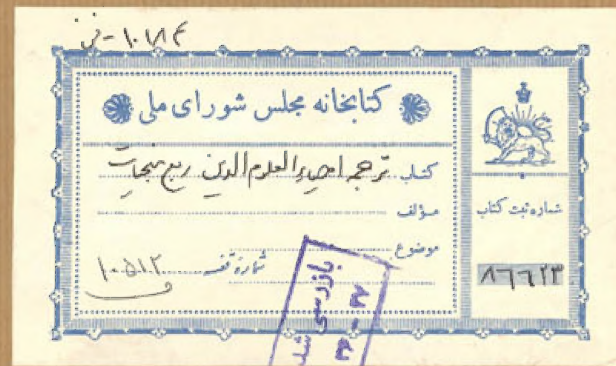 کتابخانه مجلس شورای ملی
کتاب ترجمه احیاء العلوم الدین ربع منجیات
مؤلف
موضوع
شماره قفسه
شماره ثبت کتاب
۸۶۶۲۳
بازرسی شد